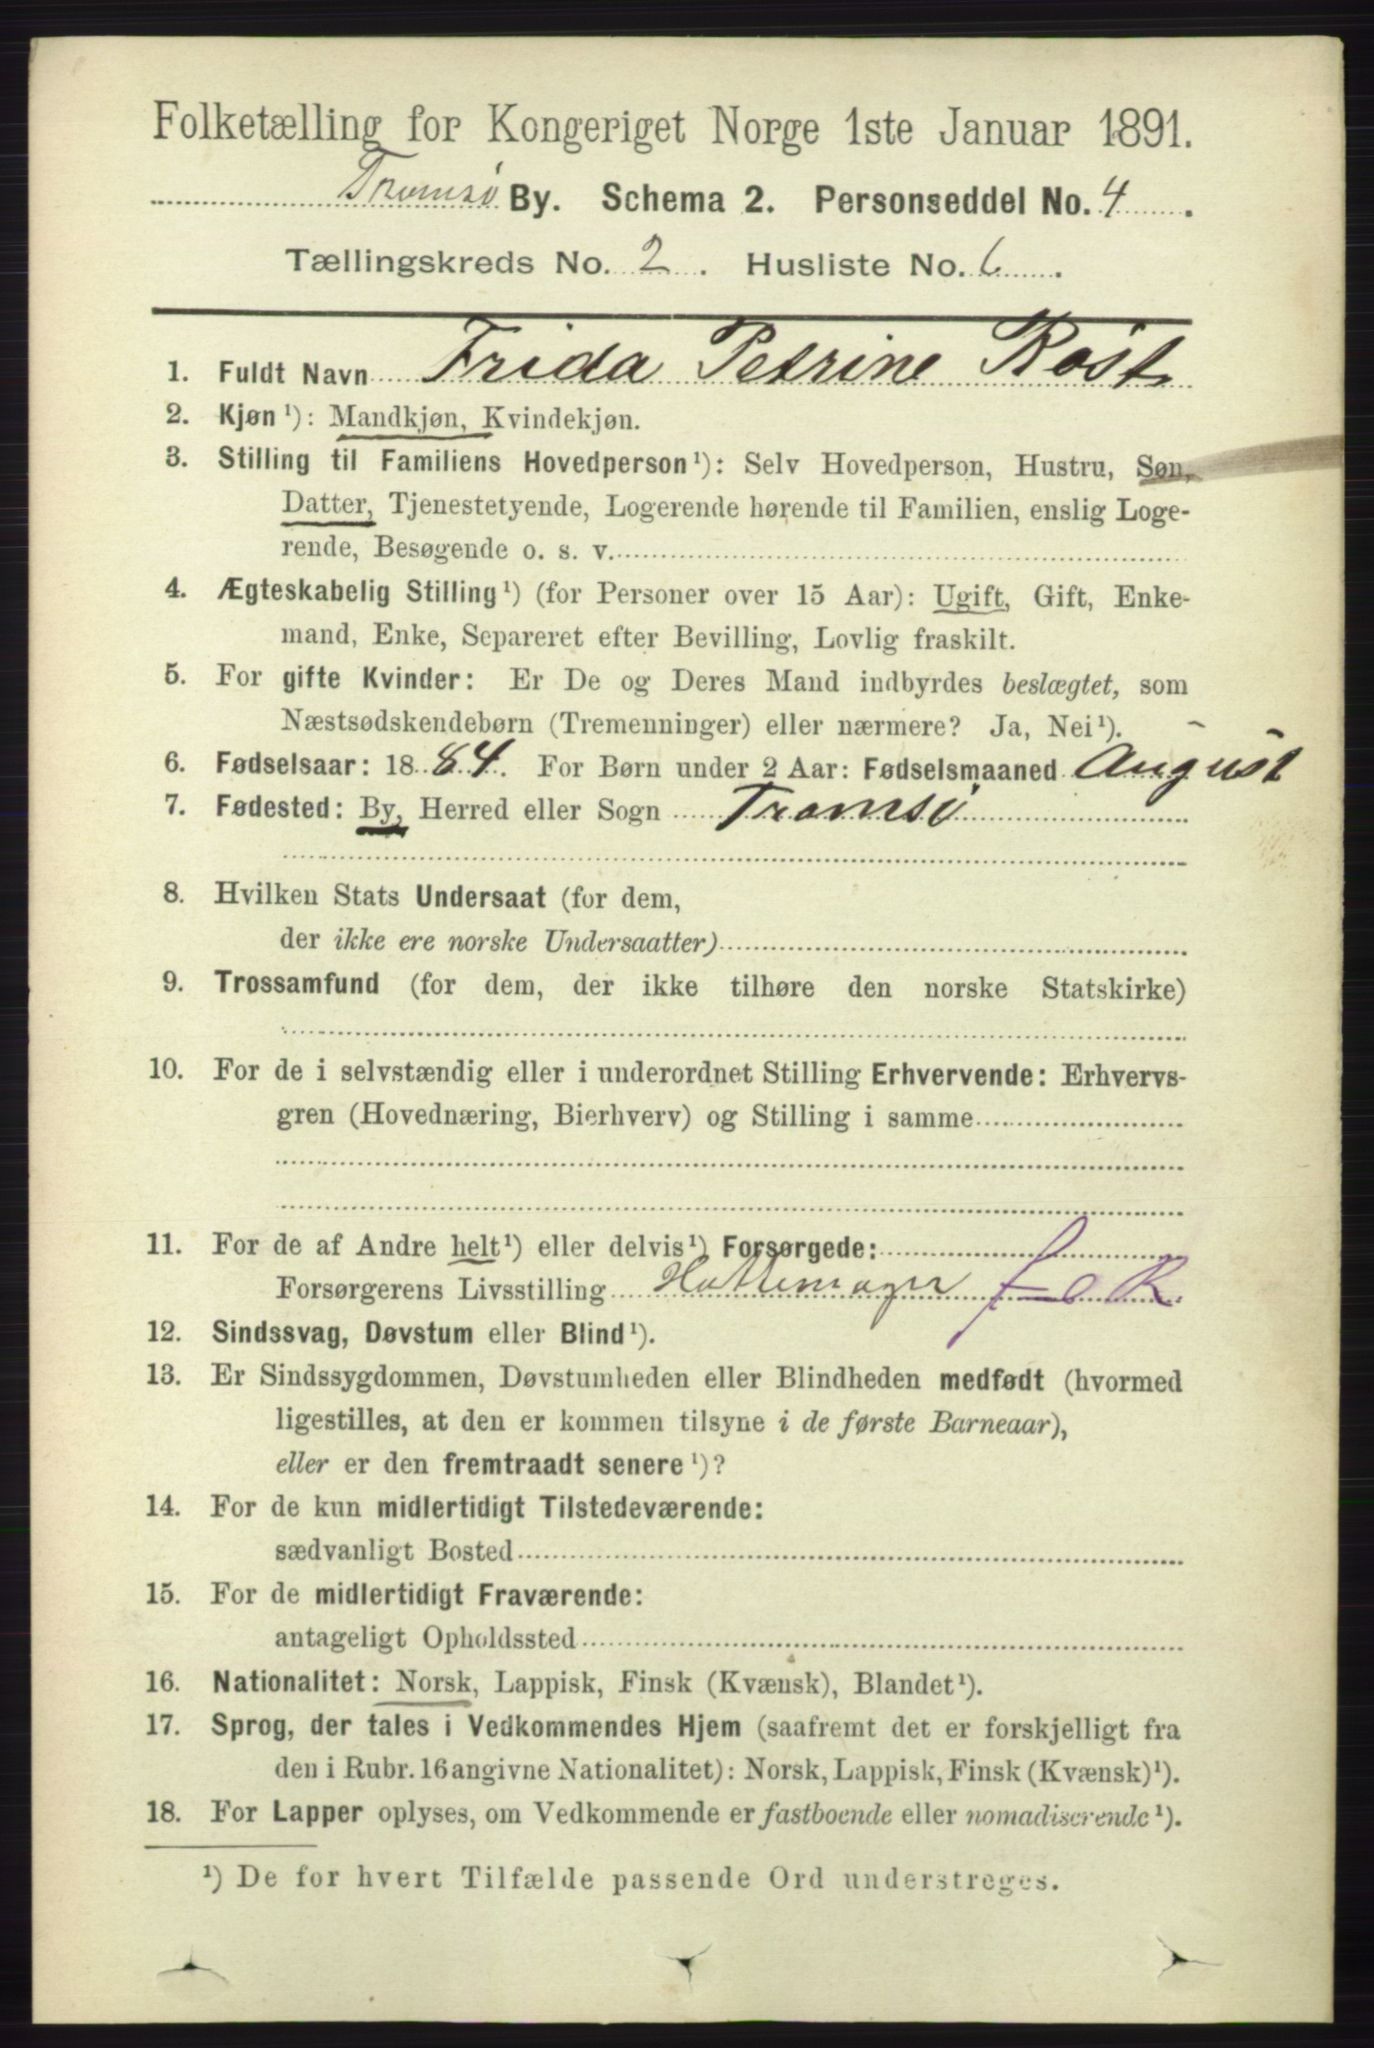 Folketælling for Kongeriget Norge 1ste Januar 1891.
Tromsø By. Schema 2. Personseddel No. 4.
Tællingskreds No. 2. Husliste No. 6.
1. Fuldt Navn Frida Petrine Rost
2. Kjøn¹): Mandkjøn, Kvindekjøn.
3. Stilling til Familiens Hovedperson¹): Selv Hovedperson, Hustru, Søn,
Datter, Tjenestetyende, Logerende hørende til Familien, enslig Loge-
rende, Besøgende o. s. v.
4. Ægteskabelig Stilling¹) (for Personer over 15 Aar): Ugift, Gift, Enke-
mand, Enke, Separeret efter Bevilling, Lovlig fraskilt.
5. For gifte Kvinder: Er De og Deres Mand indbyrdes beslægtet, som
Næstsødskendebørn (Tremenninger) eller nærmere? Ja, Nei¹).
6. Fødselsaar: 1884. For Børn under 2 Aar: Fødselsmaaned August
7. Fødested: By, Herred eller Sogn Tromsø
8. Hvilken Stats Undersaat (for dem,
der ikke ere norske Undersaatter)
9. Trossamfund (for dem, der ikke tilhøre den norske Statskirke)
10. For de i selvstændig eller i underordnet Stilling Erhvervende: Erhvervs-
gren (Hovednæring, Bierhverv) og Stilling i samme
11. For de af Andre helt¹) eller delvis¹) Forsørgede:
Forsørgerens Livsstilling Hattemager
12. Sindssvag, Døvstum eller Blind¹).
13. Er Sindssygdommen, Døvstumheden eller Blindheden medfødt (hvormed
ligestilles, at den er kommen tilsyne i de første Barneaar),
eller er den fremtraadt senere¹)?
14. For de kun midlertidigt Tilstedeværende:
sædvanligt Bosted
15. For de midlertidigt Fraværende:
antageligt Opholdssted
16. Nationalitet: Norsk, Lappisk, Finsk (Kvænsk), Blandet¹).
17. Sprog, der tales i Vedkommendes Hjem (saafremt det er forskjelligt fra
den i Rubr. 16 angivne Nationalitet): Norsk, Lappisk, Finsk (Kvænsk)¹).
18. For Lapper oplyses, om Vedkommende er fastboende eller nomadiserende¹).
¹) De for hvert Tilfælde passende Ord understreges.